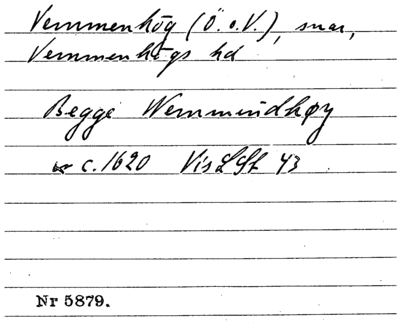 Vemmenhög (Ö. o. V.), snar,
Vemmenhögs hd
Begge Wemmindhøy
c. 1620 Vis LSt 43
Nr 5879.